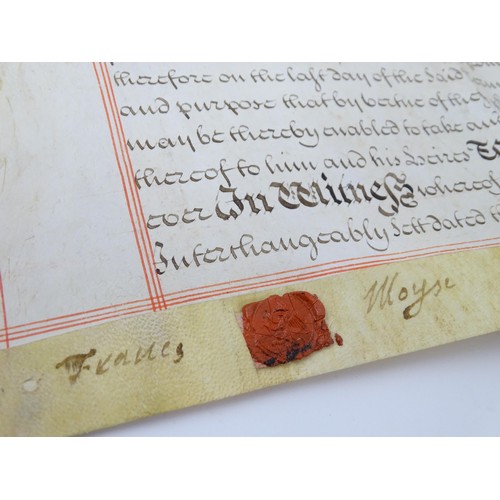 therefore on the last day of the Said
and purpose that by vertue of the
may be thereby enabled to take and
thereof to him and his Heires
ever In Witness whereof
Interchangeably Sett dated
Frances Moyse